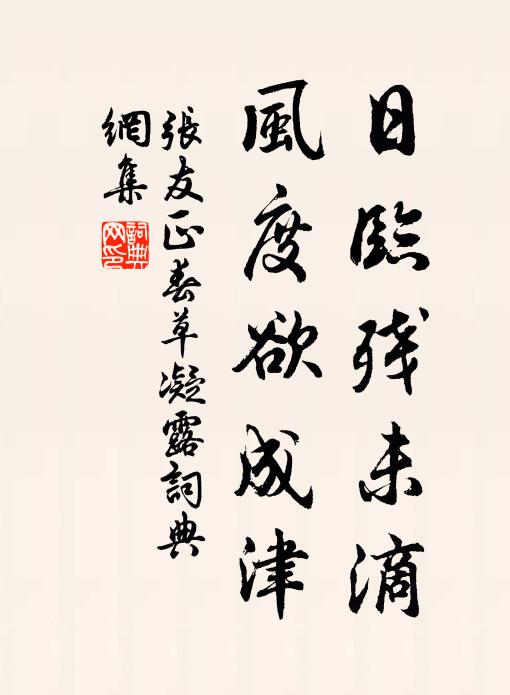 日臨残未滴
風度欲成津
張友正春草凝露詞典
網集
詞典
网印